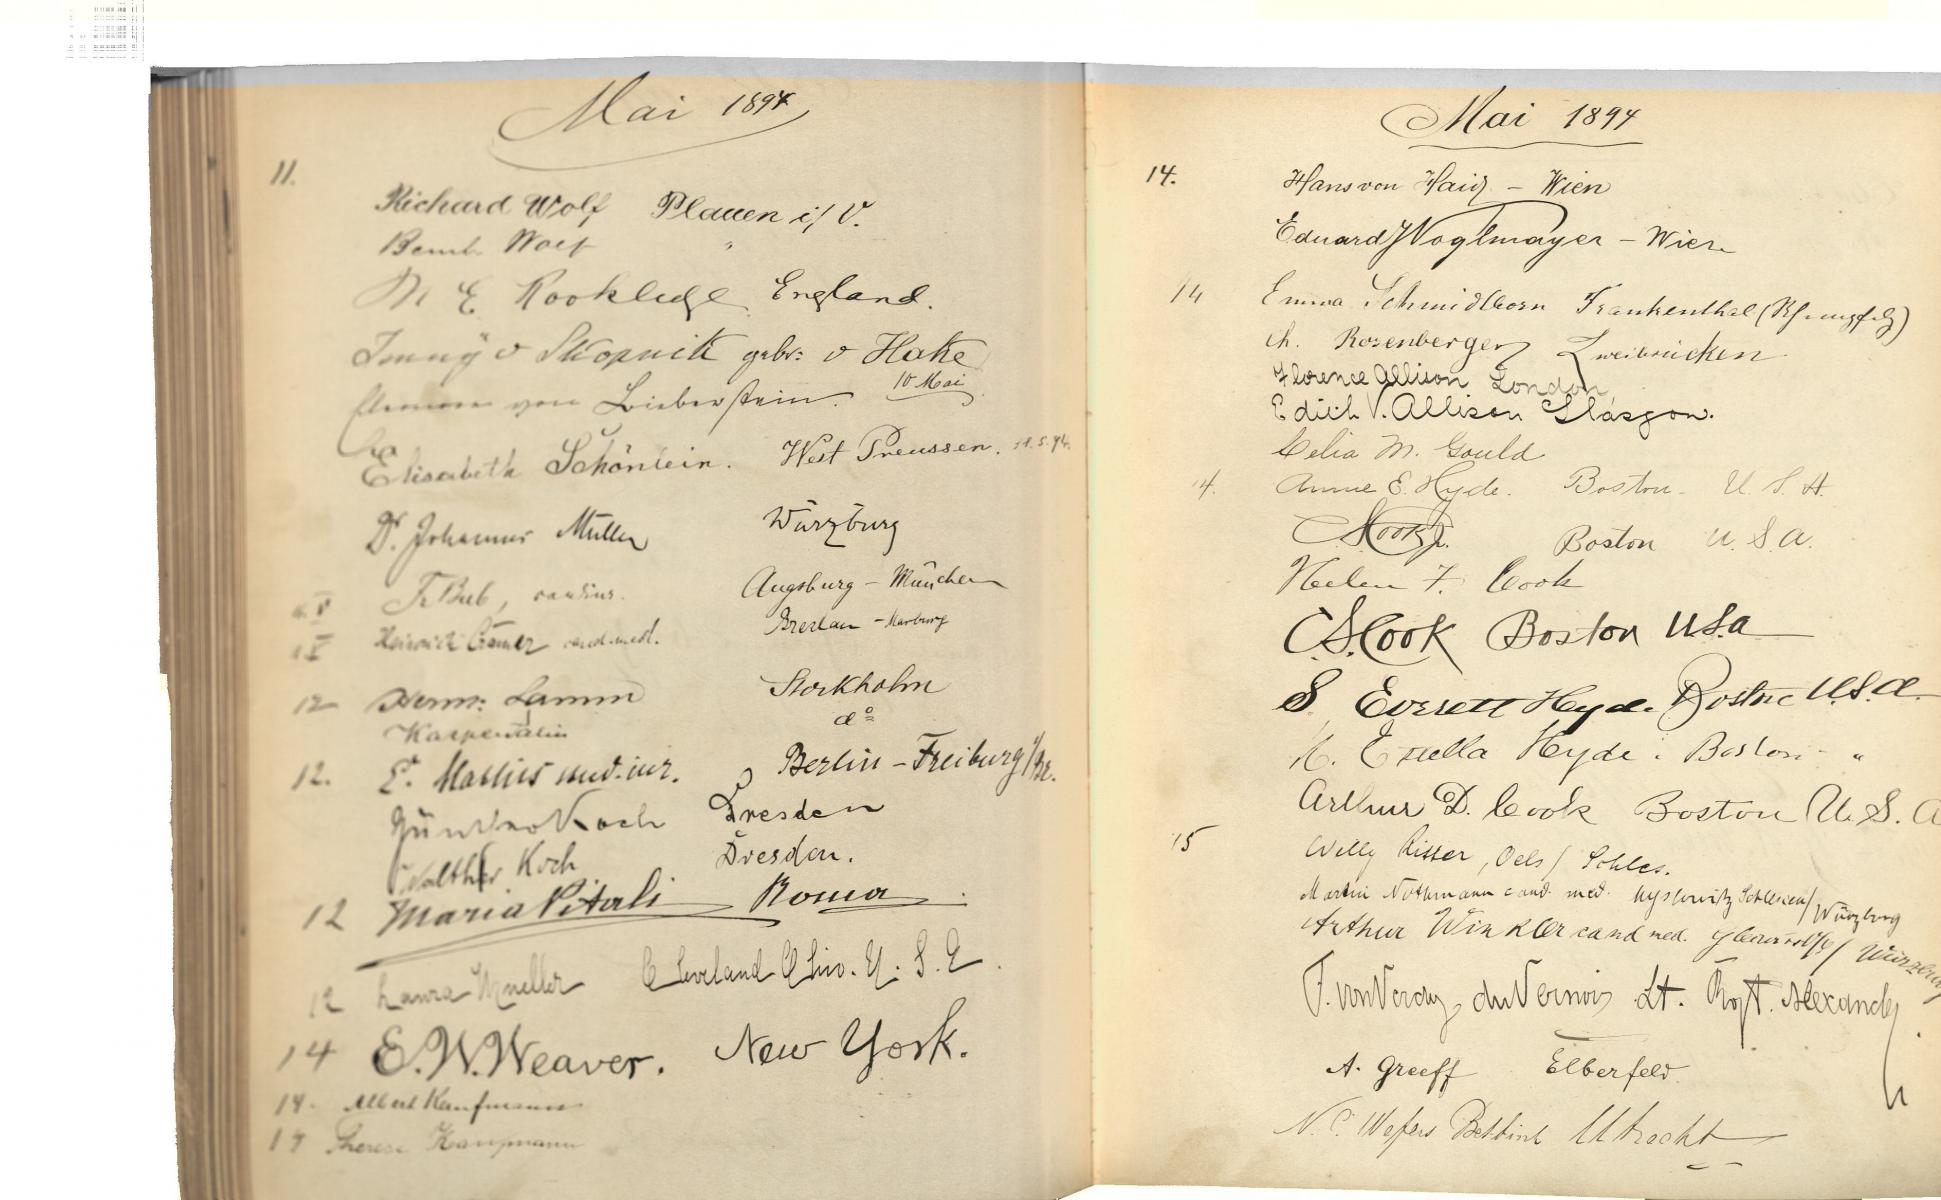 Mai 1894
11.
Richard Wolf Plauen i/V.
Wolf "
M E Rookledge England.
v Skopnik geb: v Hake
von Lieberstein. 10 Mai
Elisabeth Schönlein. West Preussen. 11.5.94.
Dr. Johannes Müller Würzburg
Fr Bub, Augsburg – München
Heinrich Cramer cand. med. Breslau – Marburg
12 Herm: Lamm Stockholm
do
12. E. Berlin – Freiburg i/Br.
Koch Dresden
Walther Koch Dresden.
12 Maria Vitali Roma
12 Laura Mueller Cleveland Ohio. U. S.
14 E. W. Weaver. New York.
14. Albert Kaufmann
14 Therese Kaufmann
Mai 1894
14. Hans von Haid – Wien
Eduard Voglmayer – Wien
14 Emma Schmidtborn Frankenthal (Rheinpfalz)
Rosenberger Zweibrücken
Florence Allison London
Edith V. Allison Glasgow.
Celia M. Gould
14. Annie E. Hyde. Boston. U. S. A.
Cook Boston U. S. A.
Helen F. Cook
C. S. Cook Boston U.S.a
S. Everett Hyde. Boston U.S.A.
Estella Hyde. Boston "
Arthur D. Cook Boston U. S. A
15 Willy Ritter, Oels / Schles.
Martin Nothmann cand. med. Myslowitz Schlesien / Würzburg
Arthur Winkler cand med. / Würzburg
F. von Verdy du Vernois Lt. Rgt. Alexander
A. Greeff Elberfeld
N. C. Wefers Bettink Utrecht